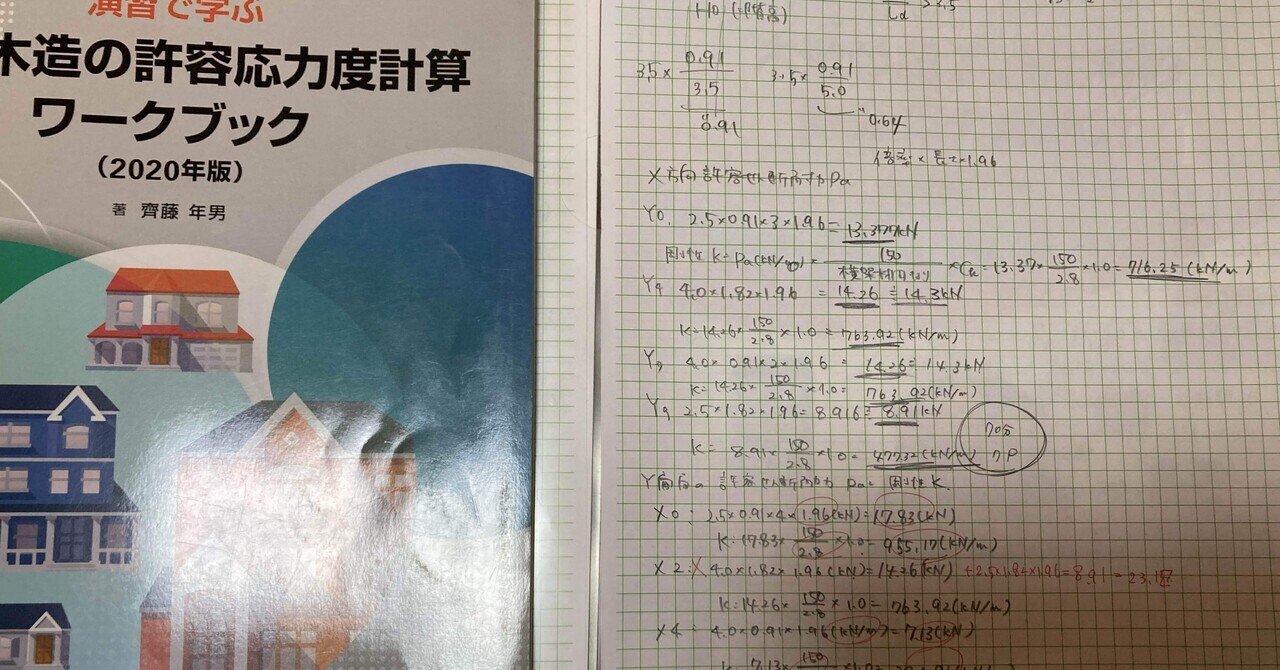 演習で学ぶ
木造の許容応力度計算
ワークブック
（2020年版）
著 齊藤 年男
H0 (階高)
Ld
3.5× 0.91/3.5 3.5× 0.91/5.0
0.91 0.64
倍率×長さ×1.96
X方向 許容せん断耐力Pa
Y0. 2.5×0.91×3×1.96=13.377kN
剛性 K=Pa(kN/m)× 150/横架材内のり ×Cu=13.37× 150/2.8 ×1.0=716.25(kN/m)
Y4 4.0×1.82×1.96 = 14.26≒14.3kN
K=14.26× 150/2.8 ×1.0=763.92(kN/m)
4.0×0.91×2×1.96 = 14.26≒14.3kN
K=14.26× 150/2.8 ×1.0= 763.92(kN/m)
Y9 2.5×1.82×1.96=8.918≒8.91kN
K= 8.91× 150/2.8 ×1.0=477.32(kN/m)
70分
7P
Y方向の許容せん断耐力 Pa= 剛性K.
X0: 2.5×0.91×4×1.96(kN)=17.83(kN)
K:17.83× 150/2.8 ×1.0=955.17(kN/m)
X2:×4.0×1.82×1.96(kN)=14.26(kN) +2.5×1.82×1.96=8.91=23.17
K:14.26× 150/2.8 ×1.0=763.92(kN/m)
X4: 4.0×0.91×1.96(kN/m)=7.13(kN)
K 7.13× 150